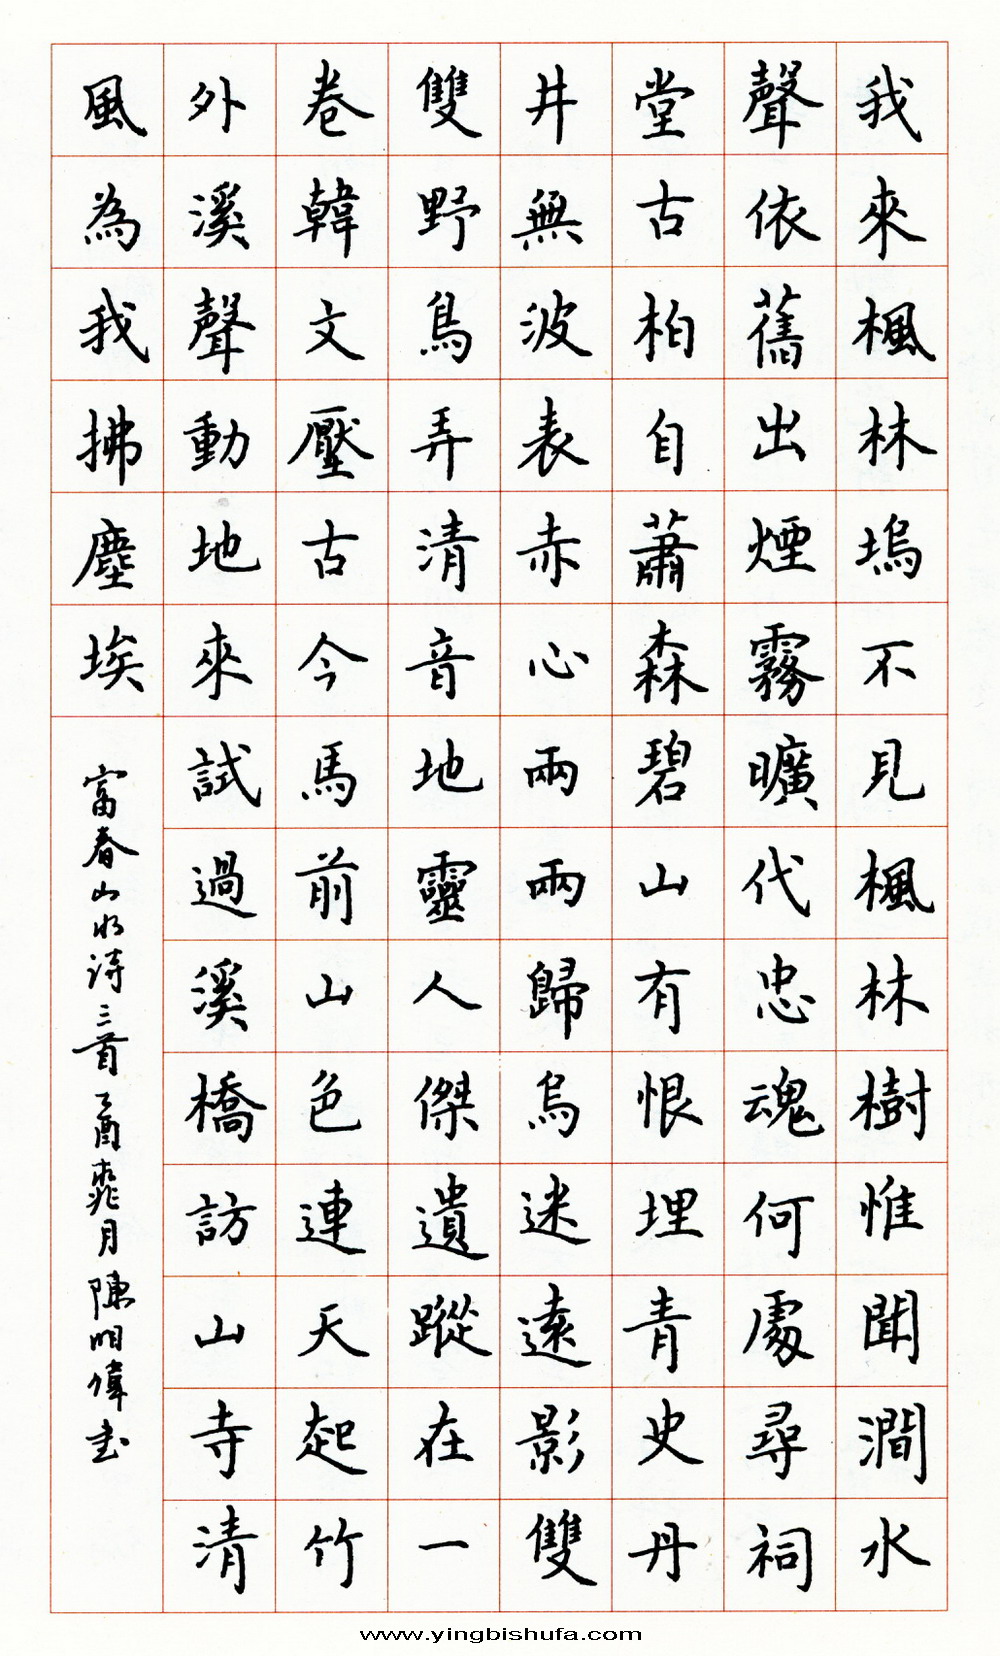 我來楓林塢不見楓林樹惟聞澗水
聲依舊出煙霧曠代忠魂何處尋祠
堂古柏自蕭森碧山有恨埋青史丹
井無波表赤心兩兩歸烏迷遠影雙
雙野鳥弄清音地靈人傑遺蹤在一
卷韓文壓古今馬前山色連天起竹
外溪聲動地來試過溪橋訪山寺清
風為我拂塵埃
富春山水诗三首乙酉桃月陳明偉书
www.yingbishufa.com